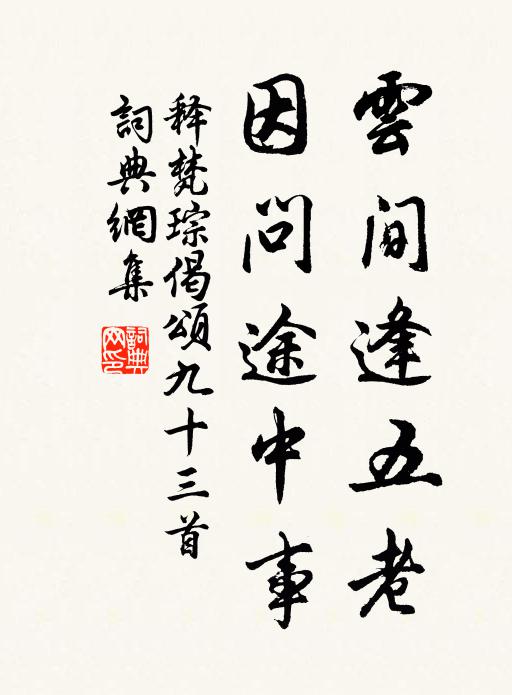 雲間逢五老
因問途中事
释梵琮偈頌九十三首
詞典網集
詞典网印